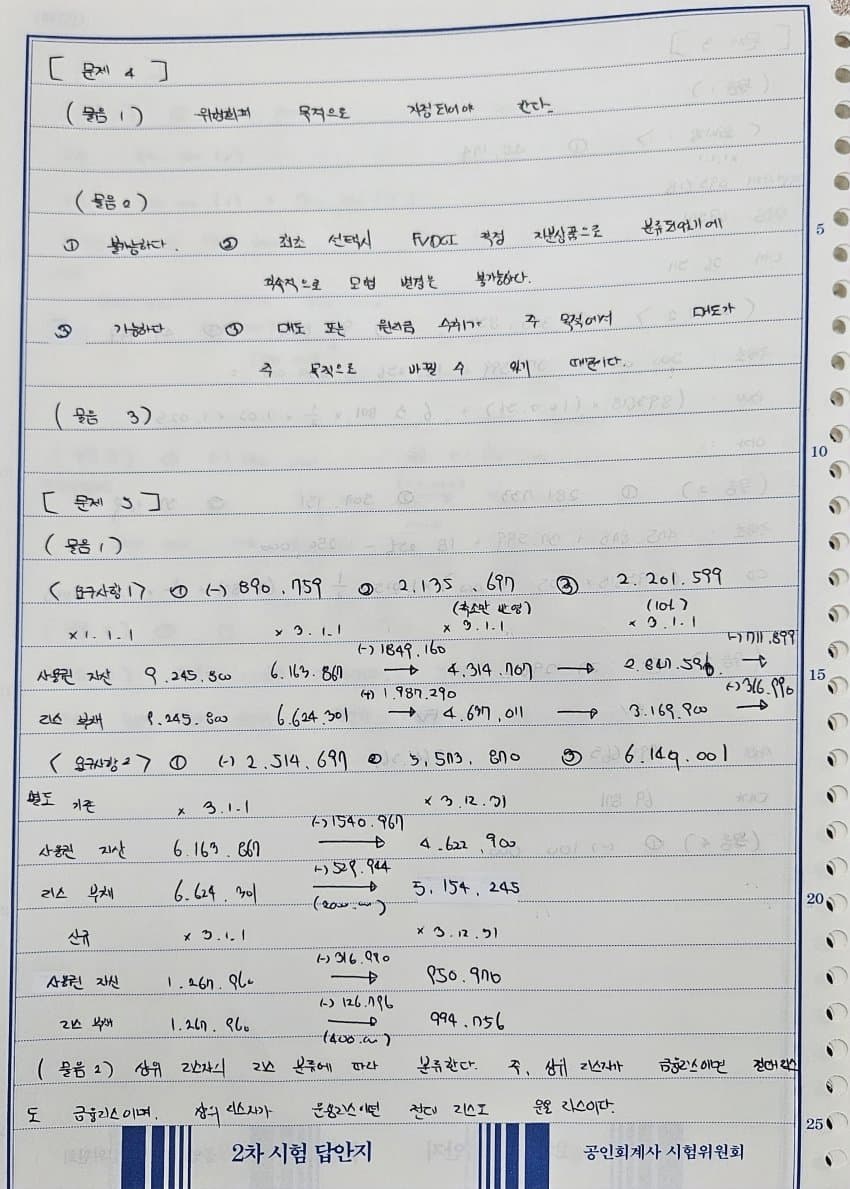 [ 문제 4 ]
(물음 1) 위험회피 목적으로 지정되어야 한다.
(물음 2)
① 불가능하다. ② 최초 선택시 FVOCI 측정 지분상품으로 분류되었기에
후속적으로 모형 변경은 불가능하다.
③ 가능하다 ④ 매도 또는 원리금 수취가 주 목적에서 매도가
주 목적으로 바뀔 수 있기 때문이다.
(물음 3)
[ 문제 5 ]
(물음 1)
< 요구사항 1 > ① (-) 890.759 ② 2.135.697 ③ 2.201.599
(축소만 반영) (10L)
×1.1.1 × 3.1.1 × 3.1.1 × 3.1.1
(-) 1849.160 (-) 711.899
사용권 자산 9.245.800 6.163.867 → 4.314.707 → 2.847.596 →
(-) 1.987.290 (-) 316.990
리스 부채 9.245.800 6.624.301 → 4.637.011 → 3.169.900 →
< 요구사항 2 > ① (-) 2.514.697 ② 5,573.870 ③ 6.149.001
별도 기존 × 3.1.1 × 3.12.31
(-) 1540.967
사용권 자산 6.163.867 → 4.622.900
(-) 529.944
리스 부채 6.624.301 → 5,154.245
신규 × 3.1.1 × 3.12.31
(-) 316.990
사용권 자산 1.267.960 → 950.970
(-) 126.796
리스 부채 1.267.960 → 994.756
(물음 2) 상위 리스자의 리스 분류에 따라 분류한다. 즉, 상위 리스자가 금융리스이면 전대리스
도 금융리스이며, 상위 리스자가 운용리스이면 전대 리스도 운용 리스이다.
5
10
15
20
25
2차 시험 답안지
공인회계사 시험위원회